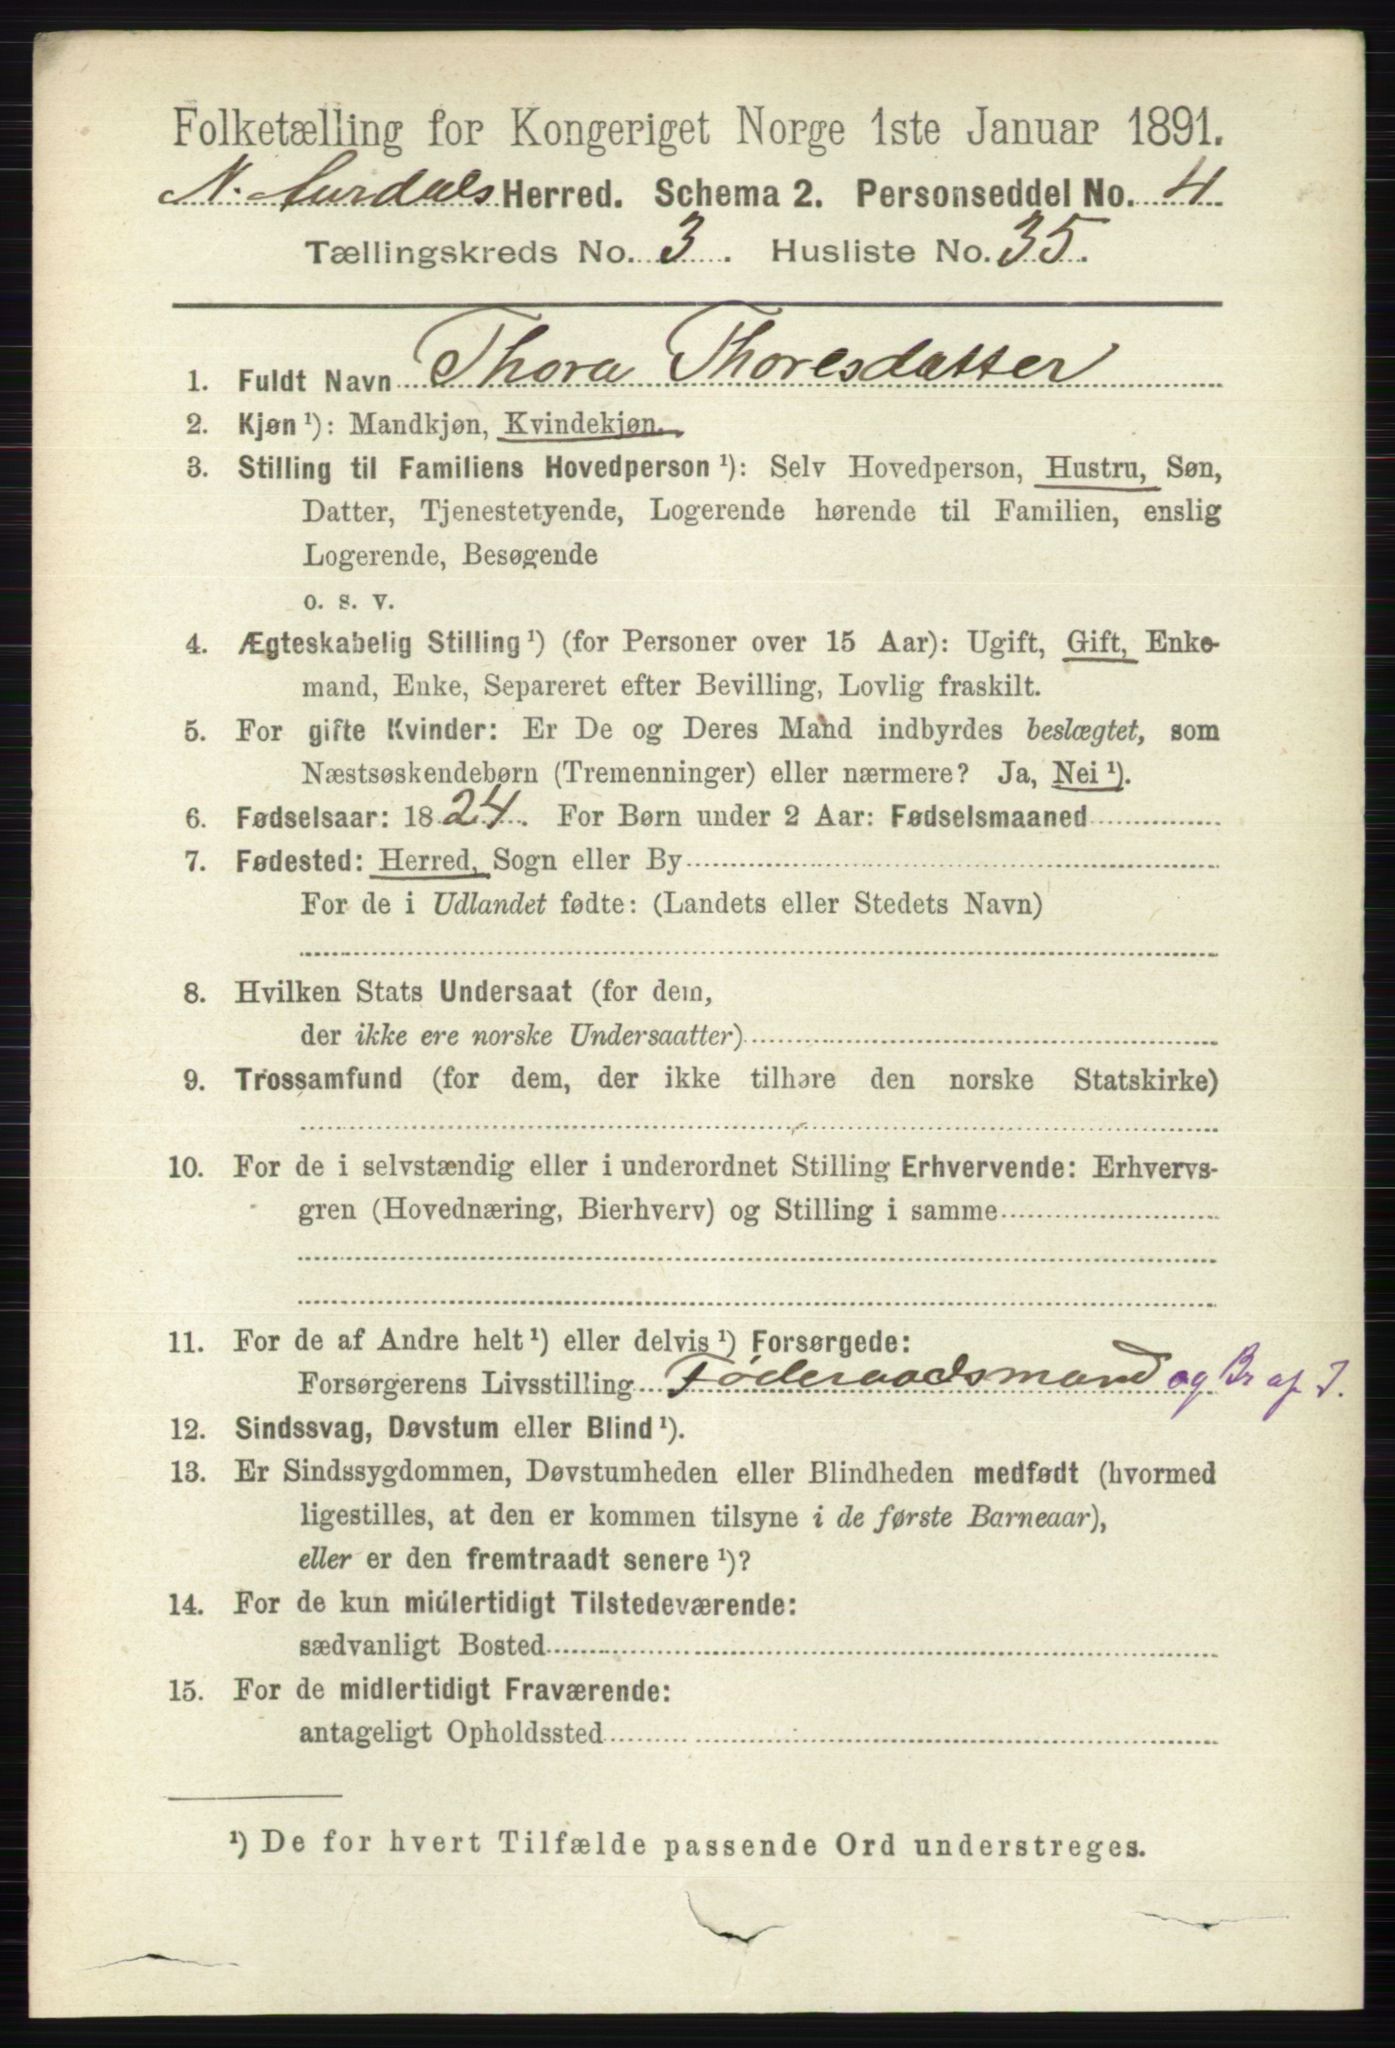 Folketælling for Kongeriget Norge 1ste Januar 1891.
N. Aurdals Herred. Schema 2. Personseddel No. 4
Tællingskreds No. 3. Husliste No. 35.
1. Fuldt Navn Thora Thoresdatter
2. Kjøn ¹): Mandkjøn, Kvindekjøn.
3. Stilling til Familiens Hovedperson ¹): Selv Hovedperson, Hustru, Søn,
Datter, Tjenestetyende, Logerende hørende til Familien, enslig
Logerende, Besøgende
o. s. v.
4. Ægteskabelig Stilling ¹) (for Personer over 15 Aar): Ugift, Gift, Enke-
mand, Enke, Separeret efter Bevilling, Lovlig fraskilt.
5. For gifte Kvinder: Er De og Deres Mand indbyrdes beslægtet, som
Næstsøskendebørn (Tremenninger) eller nærmere? Ja, Nei ¹).
6. Fødselsaar: 1824. For Børn under 2 Aar: Fødselsmaaned
7. Fødested: Herred, Sogn eller By
For de i Udlandet fødte: (Landets eller Stedets Navn)
8. Hvilken Stats Undersaat (for dem,
der ikke ere norske Undersaatter)
9. Trossamfund (for dem, der ikke tilhøre den norske Statskirke)
10. For de i selvstændig eller i underordnet Stilling Erhvervende: Erhvervs-
gren (Hovednæring, Bierhverv) og Stilling i samme
11. For de af Andre helt ¹) eller delvis ¹) Forsørgede:
Forsørgerens Livsstilling Føderaadsmand og Br af J.
12. Sindssvag, Døvstum eller Blind ¹).
13. Er Sindssygdommen, Døvstumheden eller Blindheden medfødt (hvormed
ligestilles, at den er kommen tilsyne i de første Barneaar),
eller er den fremtraadt senere ¹)?
14. For de kun midlertidigt Tilstedeværende:
sædvanligt Bosted
15. For de midlertidigt Fraværende:
antageligt Opholdssted
¹) De for hvert Tilfælde passende Ord understreges.